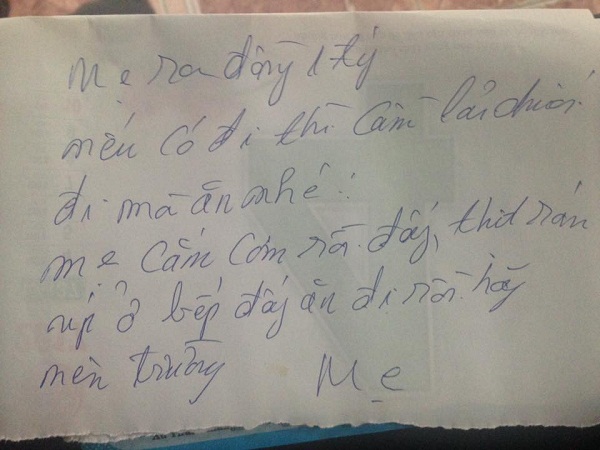 Mẹ ra đồng 1 tý
nếu có đi thì cầm lải chuối
đi mà ăn nhé!
mẹ cắm cơm rồi đấy, thịt rán
úp ở bếp đấy ăn đi rồi hãy
nên trường Mẹ